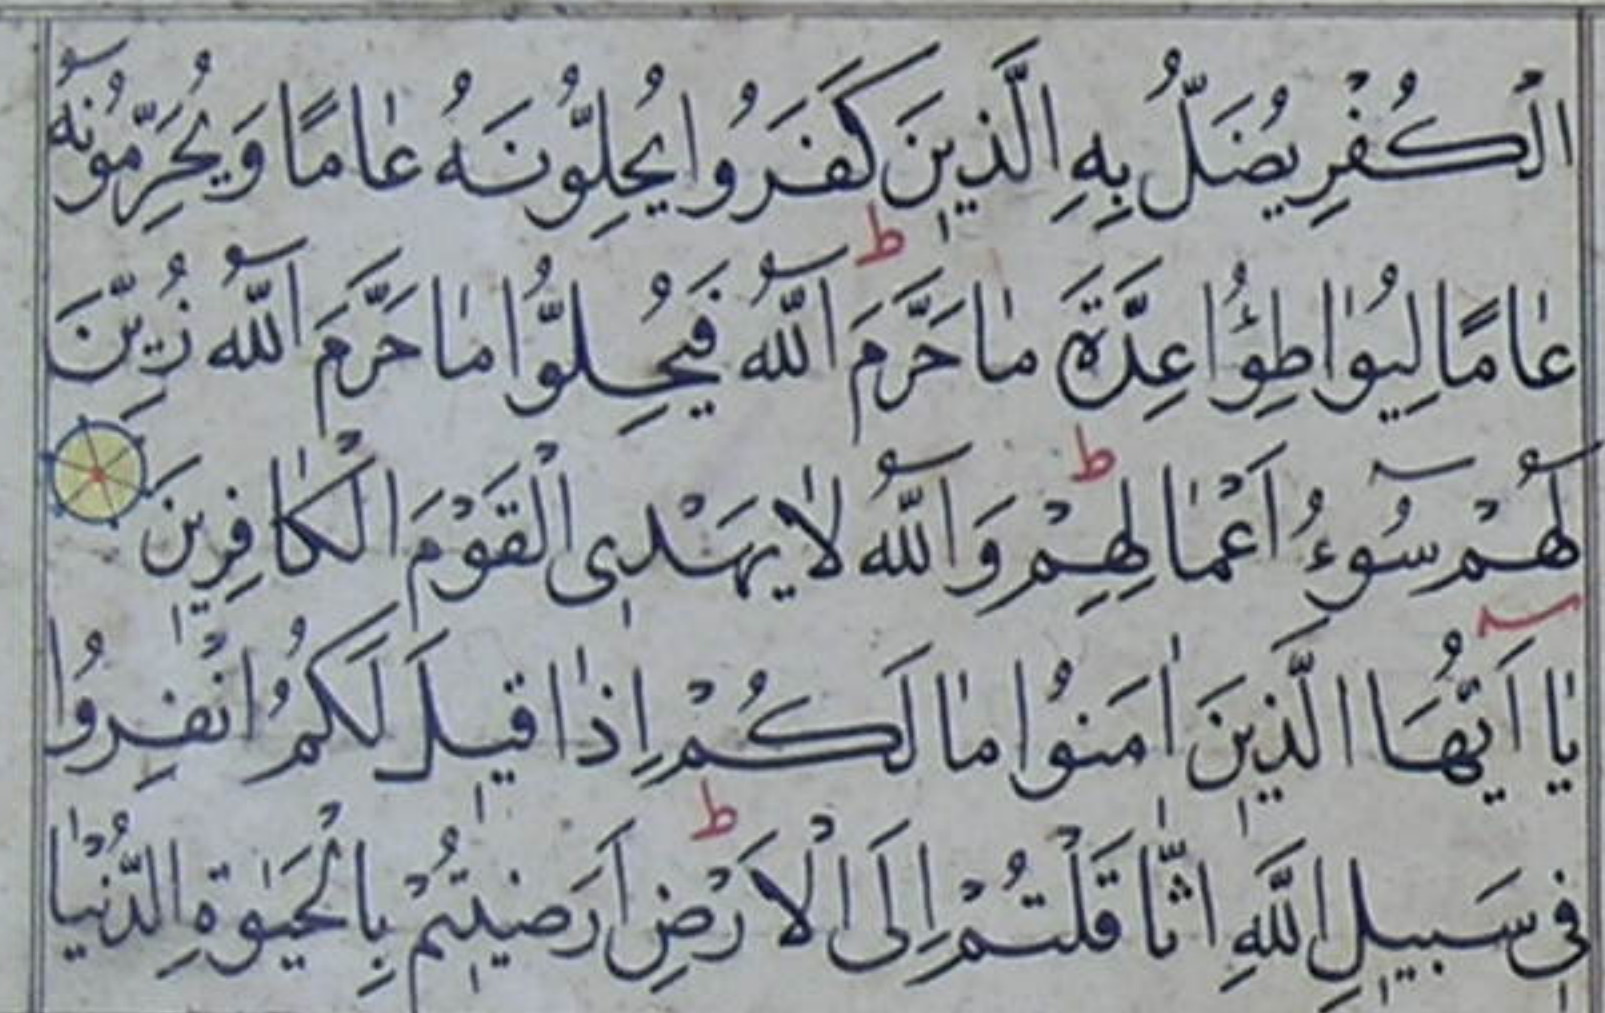 الْكُفْرِ يُضَلُّ بِهِ الَّذِينَ كَفَرُوا يُحِلُّونَهُ عَامًا وَيُحَرِّمُونَهُ
عَامًا لِيُوَاطِؤُا عِدَّةَ مَا حَرَّمَ اللّٰهُ فَيُحِلُّوا مَا حَرَّمَ اللّٰهُ زُيِّنَ
لَهُمْ سُوٓءُ اَعْمَالِهِمْ ط وَاللّٰهُ لَا يَهْدِى الْقَوْمَ الْكَافِرِينَ
يَا اَيُّهَا الَّذِينَ اٰمَنُوا مَا لَكُمْ اِذَا قِيلَ لَكُمُ انْفِرُوا
فِى سَبِيلِ اللّٰهِ اثَّاقَلْتُمْ اِلَى الْاَرْضِ ط اَرَضِيتُمْ بِالْحَيٰوةِ الدُّنْيَا